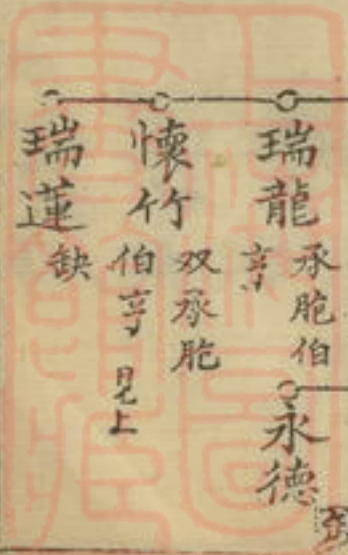 瑞龍
承胞伯
亨
永德
懷竹
双承胞
伯亨 見上
瑞蓮
缺